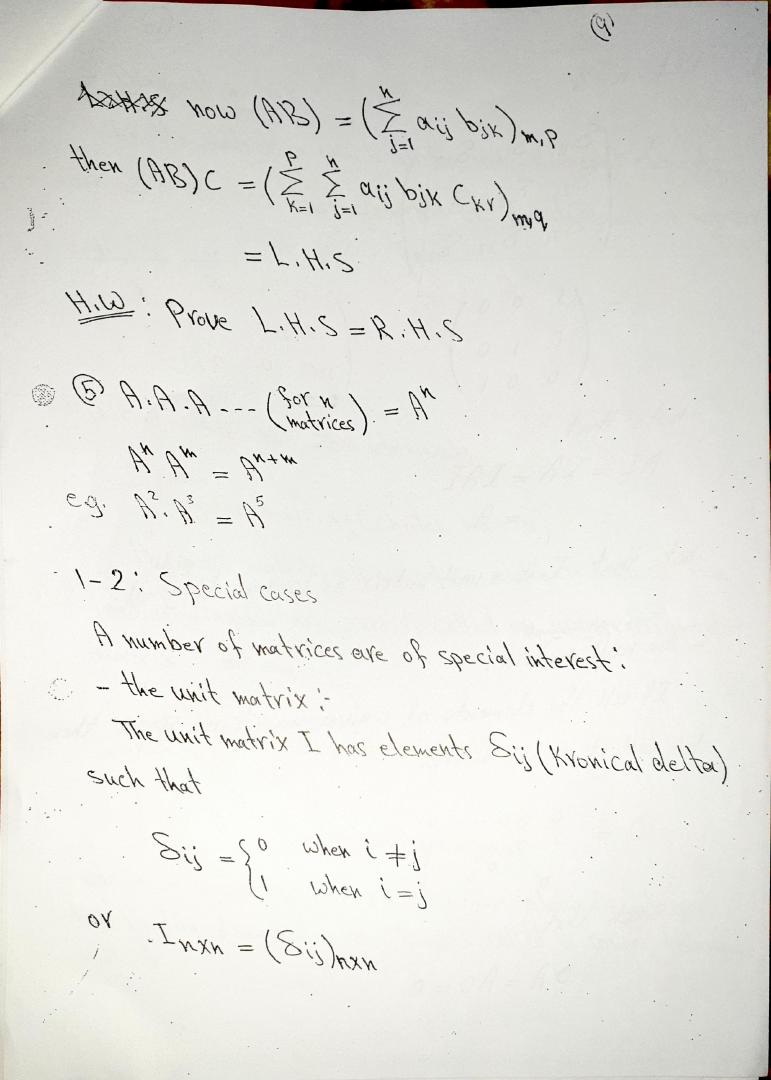 (9)
now (AB) = (∑_{j=1}^{n} aij bjk)m,p
then (AB)C = (∑_{k=1}^{p} ∑_{j=1}^{n} aij bjk Ckr)m,q
= L.H.S
H.W : Prove L.H.S = R.H.S
⑤ A.A.A --- (for n matrices) = Aⁿ
Aⁿ Aᵐ = Aⁿ⁺ᵐ
e.g. A². A³ = A⁵
1-2: Special cases
A number of matrices are of special interest:
- the unit matrix :-
The unit matrix I has elements δij (Kronical delta)
such that
δij = { 0 when i ≠ j
1 when i = j
or Inxn = (δij)nxn